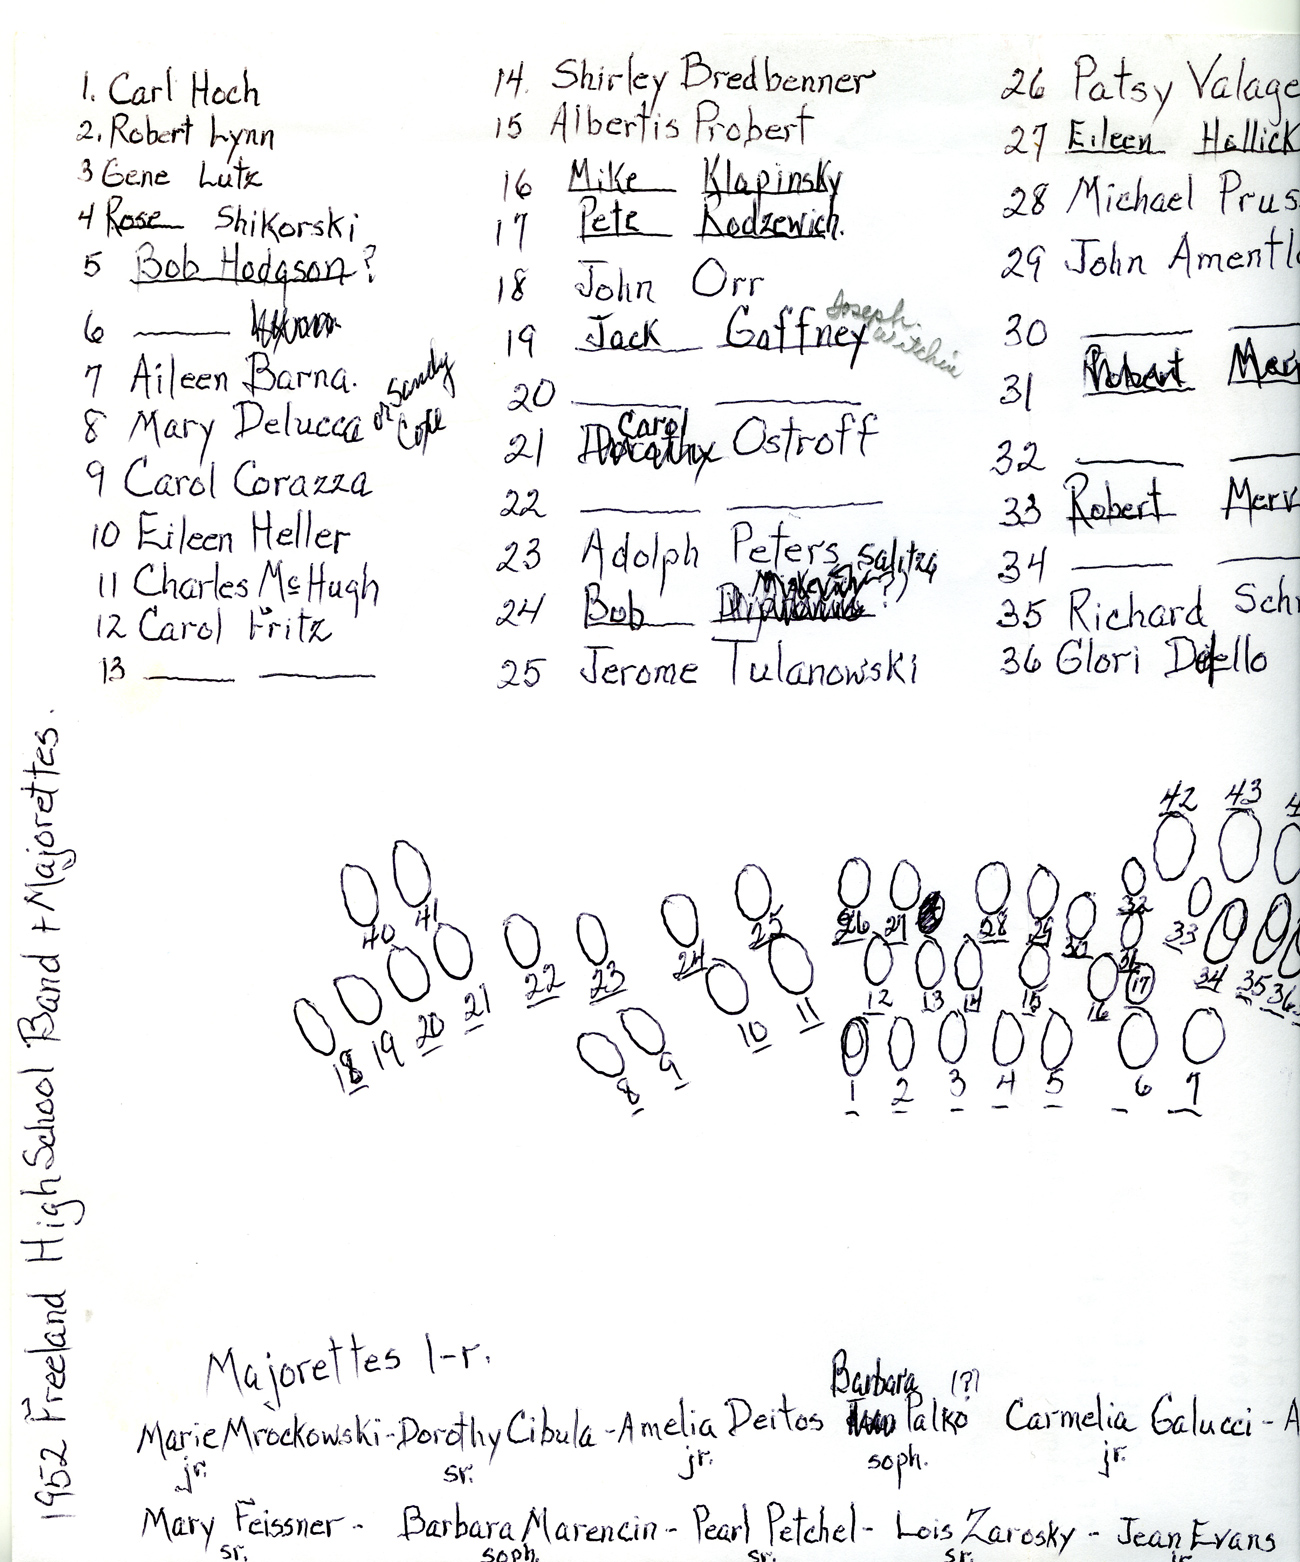 1. Carl Hoch
2. Robert Lynn
3 Gene Lutz
4 Rose Shikorski
5 Bob Hodgson?
6
7 Aileen Barna.
8 Mary Delucca or Sandy Cope
9 Carol Corazza
10 Eileen Heller
11 Charles McHugh
12 Carol Fritz
13
14. Shirley Bredbenner
15 Albertis Probert
16 Mike Klapinsky
17 Pete Rodzewich.
18 John Orr
19 Jack Gaffney Joseph
20
21 Dorothy Carol Ostroff
22
23 Adolph Peters
24 Bob (?)
25 Jerome Tulanowski
26 Patsy Valage
27 Eileen Hallick
28 Michael Prus
29 John Amentl
30
31 Robert Mer
32
33 Robert Merv
34
35 Richard Sch
36 Glori
1952 Freeland High School Band + Majorettes.
42 43 4
40 41 25 26 27 28 29 30 32 33
18 19 20 21 22 23 24 34 35 36
10 11 12 13 14 15 16 17
8 9 1 2 3 4 5 6 7
Majorettes l-r.
Barbara (?)
Marie Mrockowski - Dorothy Cibula - Amelia Deitos Palko Carmelia Galucci - A
jr. sr. jr. soph. jr.
Mary Feissner - Barbara Marencin - Pearl Petchel - Lois Zarosky - Jean Evans
sr. soph. sr. sr. jr.